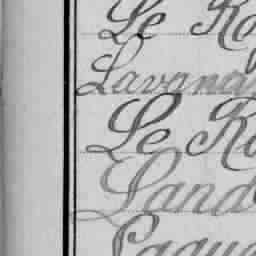 Le Ro
Lavana
Le Ro
Land
Laqu